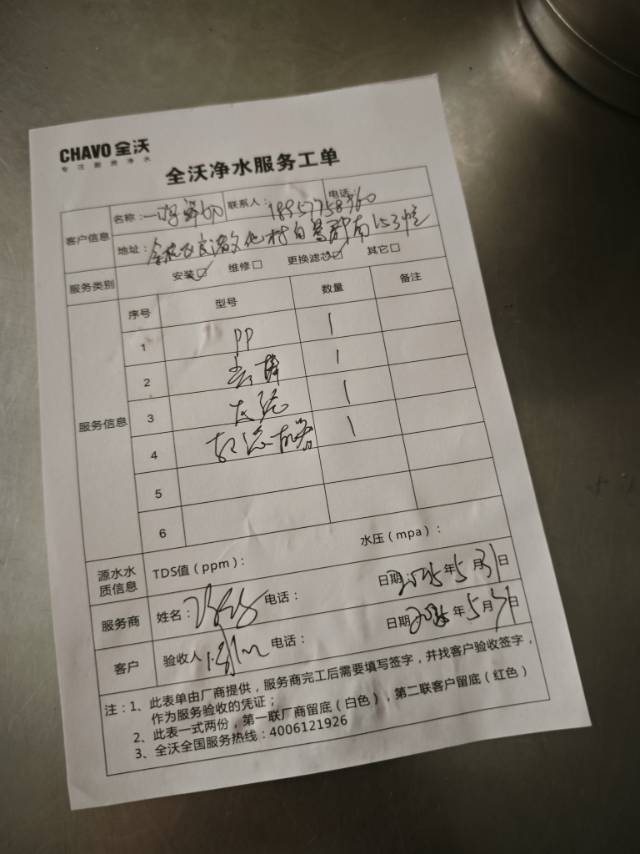 CHAVO 全沃
专注厨房净水
全沃净水服务工单
客户信息
名称：
联系人：
电话：
地址：
服务类别
安装 维修 更换滤芯 其它
服务信息
序号 型号 数量 备注
1 PP 1
2 1
3 1
4 1
5
6
源水水质信息
TDS值（ppm）： 水压（mpa）：
服务商 姓名： 电话： 日期： 年5月31日
客户 验收人 电话： 日期： 年5月31日
注：1、此表单由厂商提供，服务商完工后需要填写签字，并找客户验收签字，
作为服务验收的凭证；
2、此表一式两份，第一联厂商留底（白色），第二联客户留底（红色）
3、全沃全国服务热线：4006121926